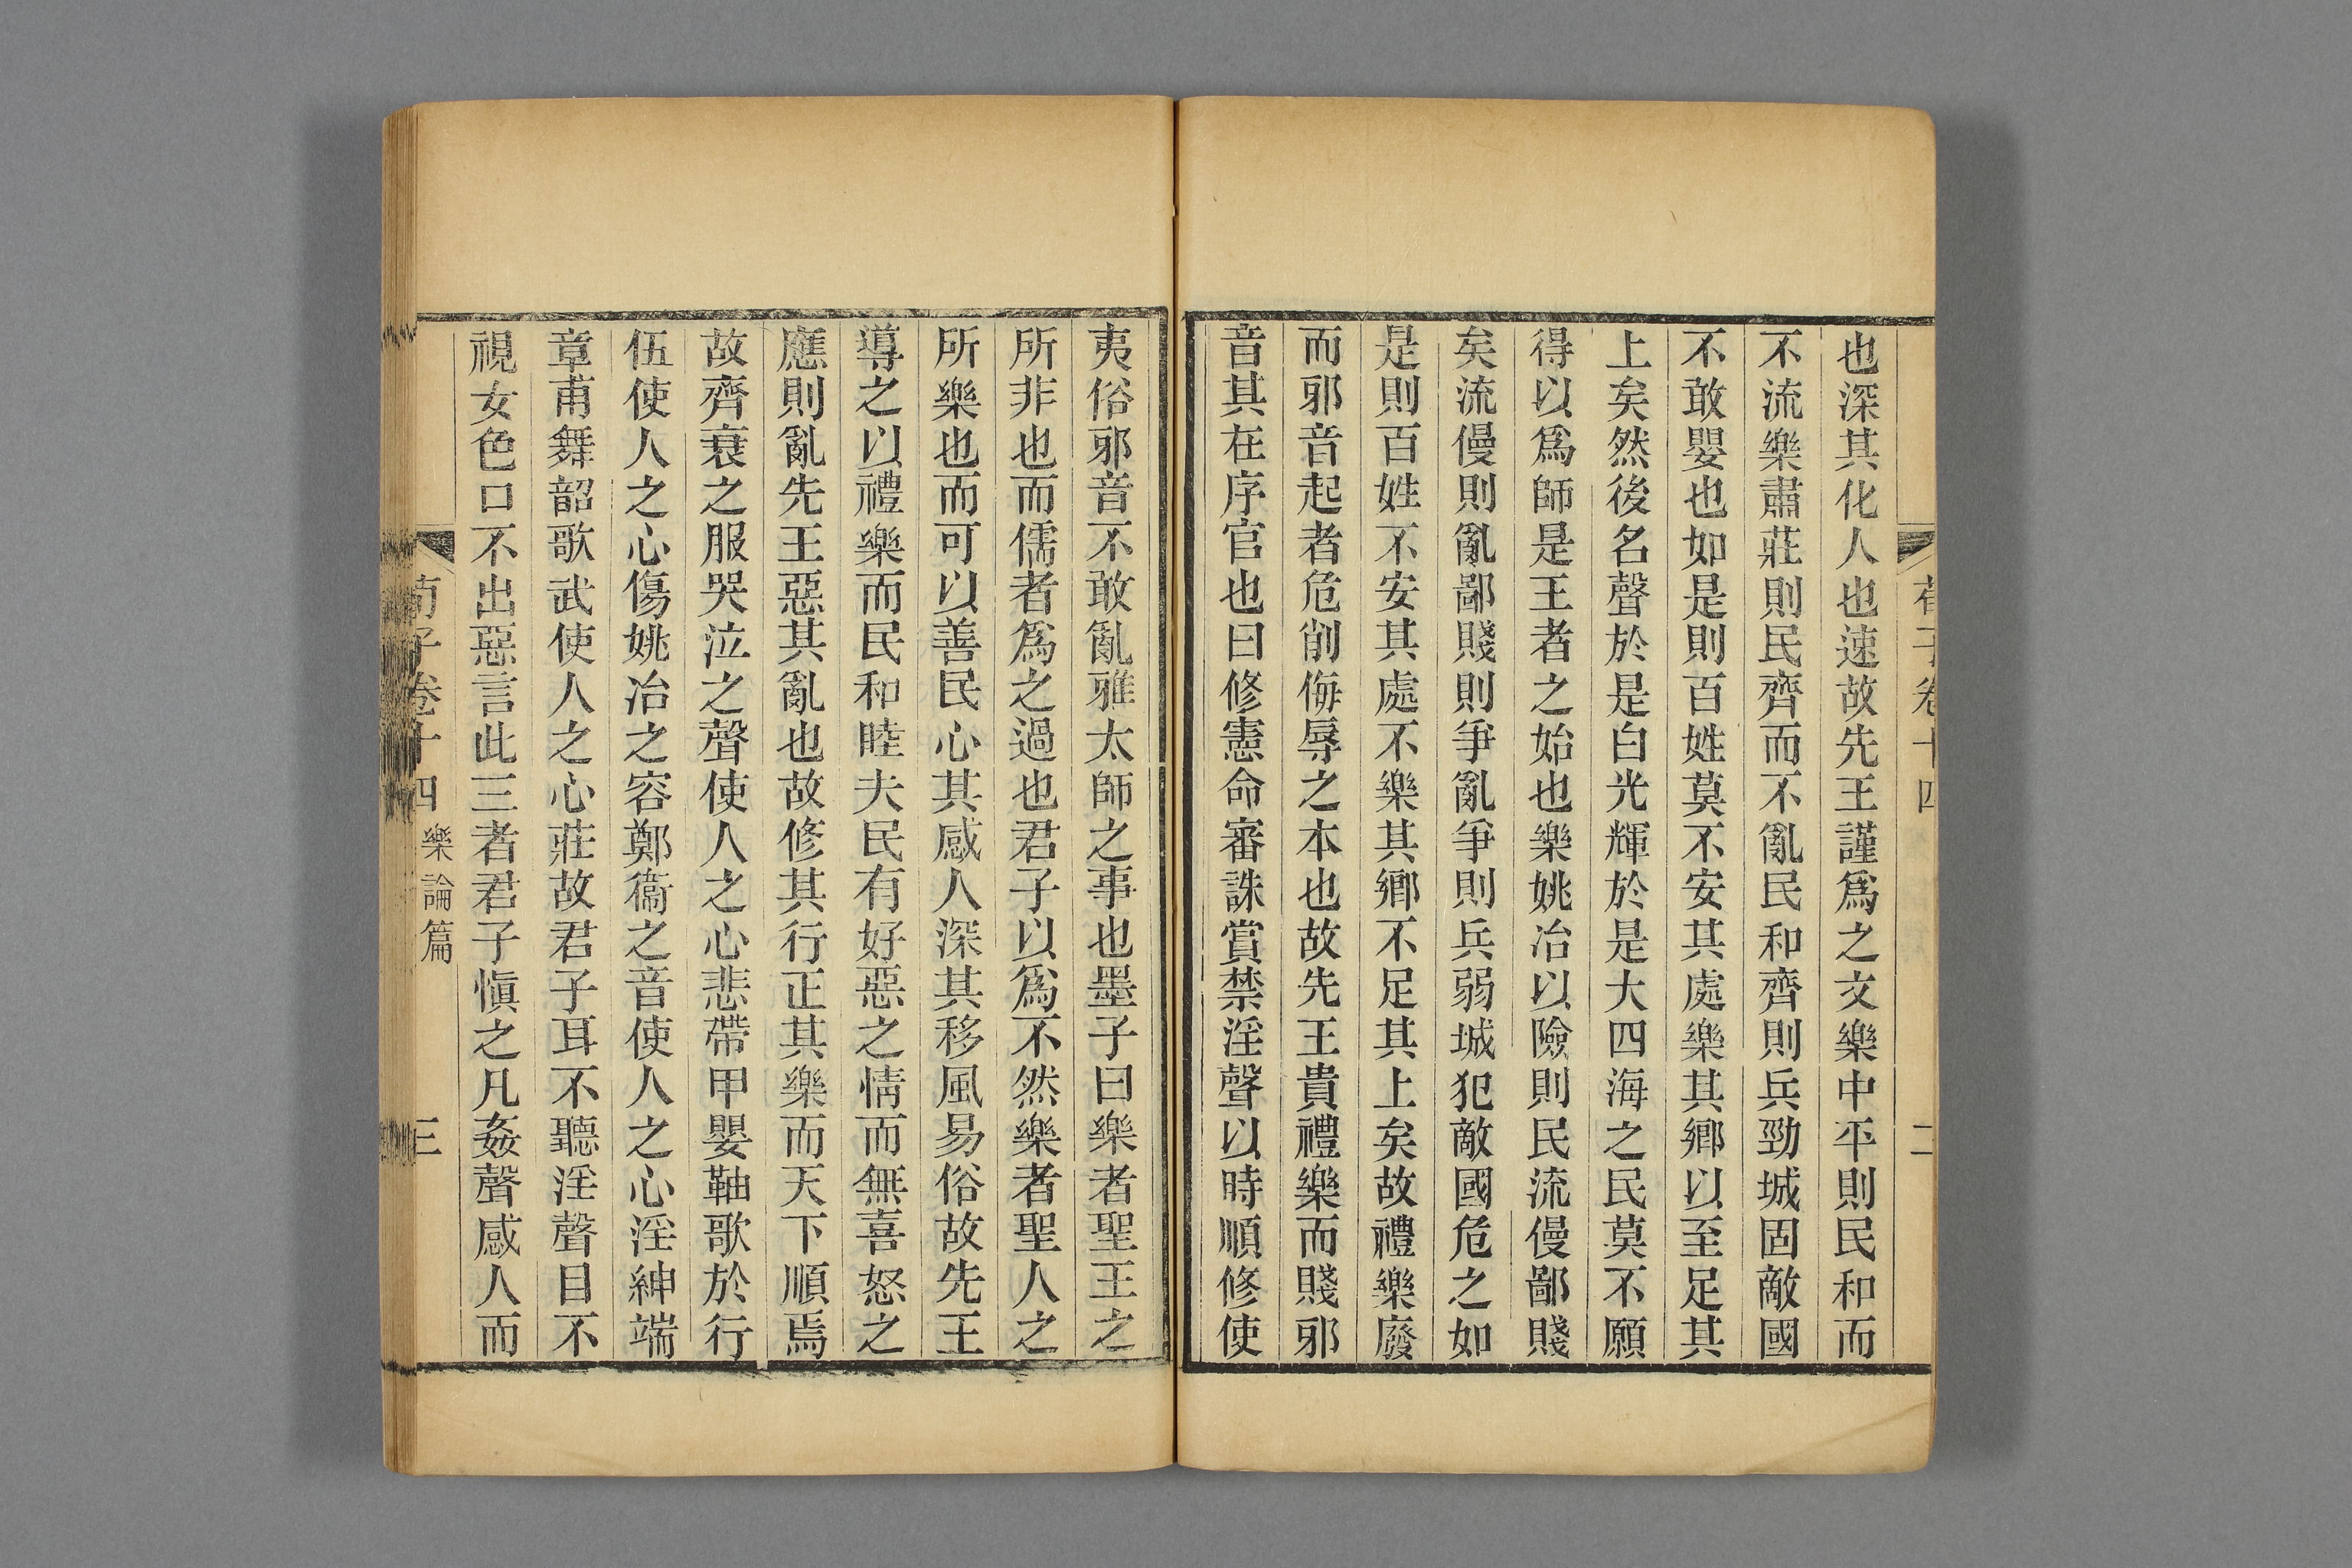 也深其化人也速故先王謹爲之文樂中平則民和而
不流樂肅莊則民齊而不亂民和齊則兵勁城固敵國
不敢嬰也如是則百姓莫不安其處樂其鄉以至足其
上矣然後名聲於是白光輝於是大四海之民莫不願
得以爲師是王者之始也樂姚冶以險則民流僈鄙賤
矣流僈則亂鄙賤則爭亂爭則兵弱城犯敵國危之如
是則百姓不安其處不樂其鄉不足其上矣故禮樂廢
而邪音起者危削侮辱之本也故先王貴禮樂而賤邪
音其在序官也曰修憲命審誅賞禁淫聲以時順修使
夷俗邪音不敢亂雅太師之事也墨子曰樂者聖王之
所非也而儒者爲之過也君子以爲不然樂者聖人之
所樂也而可以善民心其感人深其移風易俗故先王
導之以禮樂而民和睦夫民有好惡之情而無喜怒之
應則亂先王惡其亂也故修其行正其樂而天下順焉
故齊衰之服哭泣之聲使人之心悲帶甲嬰䩜歌於行
伍使人之心傷姚冶之容鄭衞之音使人之心淫紳端
章甫舞韶歌武使人之心莊故君子耳不聽淫聲目不
視女色口不出惡言此三者君子愼之凡姦聲感人而
荀子卷十四 樂論篇 三